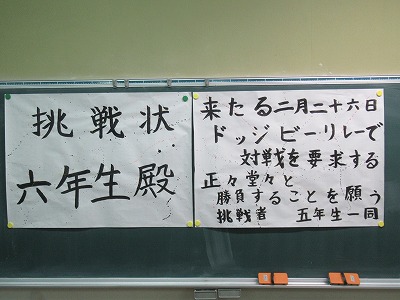 挑戦状
六年生殿
来たる二月二十六日
ドッジビーリレーで
対戦を要求する
正々堂々と
勝負することを願う
挑戦者 五年生一同